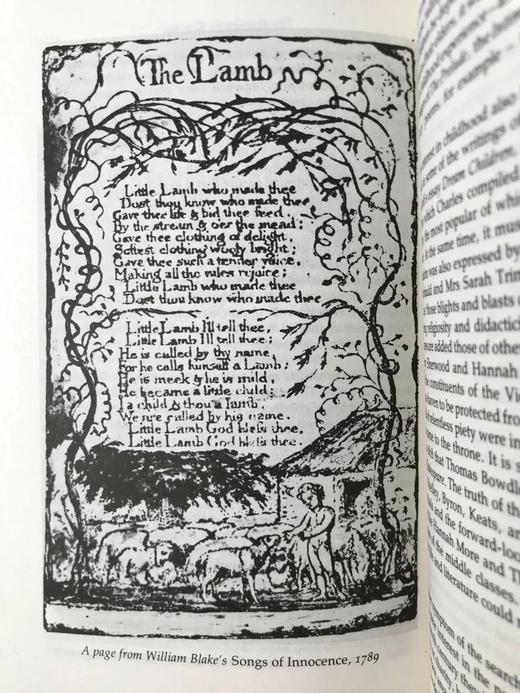 The Lamb
Little Lamb who made thee
Dost thou know who made thee
Gave thee life & bid thee feed,
By the stream & o'er the mead;
Gave thee clothing of delight,
Softest clothing wooly bright;
Gave thee such a tender voice,
Making all the vales rejoice;
Little Lamb who made thee
Dost thou know who made thee
Little Lamb I'll tell thee,
Little Lamb I'll tell thee;
He is called by thy name,
For he calls himself a Lamb:
He is meek & he is mild,
He became a little child:
I a child & thou a lamb,
We are called by his name.
Little Lamb God bless thee.
Little Lamb God bless thee.
A page from William Blake's Songs of Innocence, 1789
experience
Prelude, the
poems, for example –
in childhood also
some of the writings of
essay Dream Children,
which Charles compiled
the most popular of
the same time, it must
was also expressed by
and Mrs Sarah
those blights and blasts
religiosity and
are added those of other
Sherwood and Hannah
the constituents of the
to be protected from
relentless piety were
to the throne. It is
that Thomas
The truth of
Byron, Keats,
and the forward-
Hannah More and
of the middle classes.
and literature could
symptom of the search
interest in the